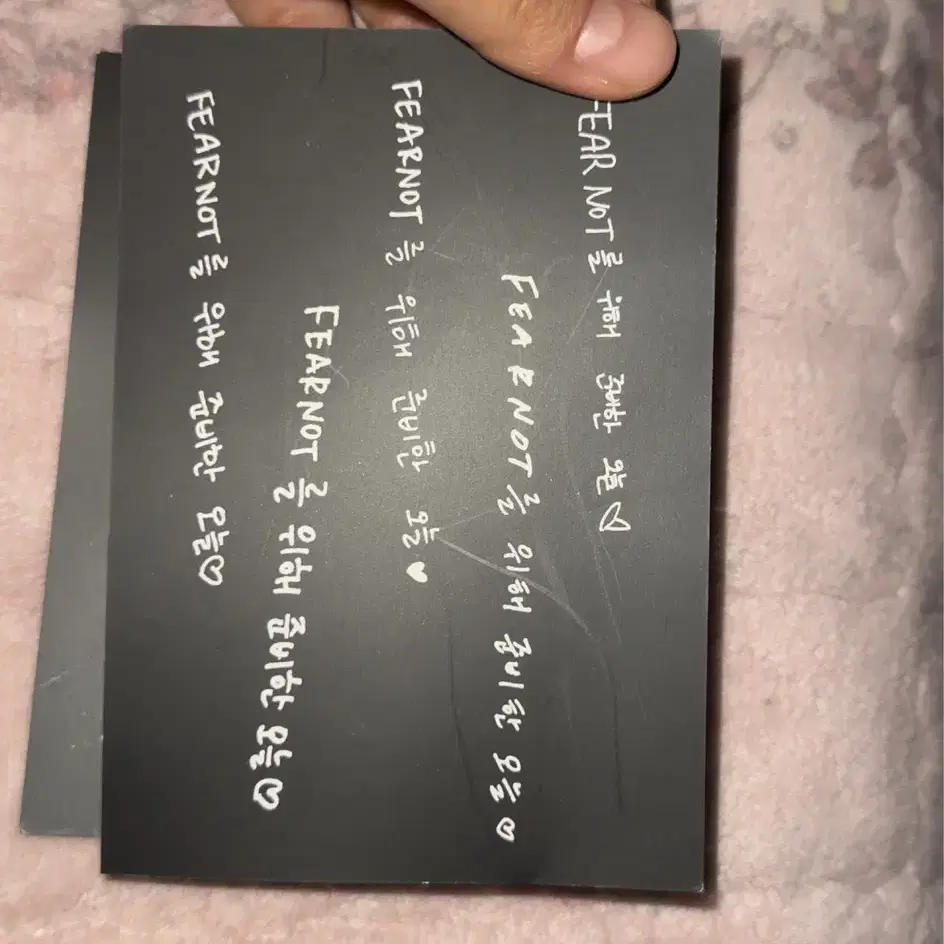 FEARNOT를 위해 준비한 오늘♡
FEARNOT를 위해 준비한 오늘♡
FEARNOT를 위해 준비한 오늘♥
FEARNOT를 위해 준비한 오늘♡
FEARNOT를 위해 준비한 오늘♡